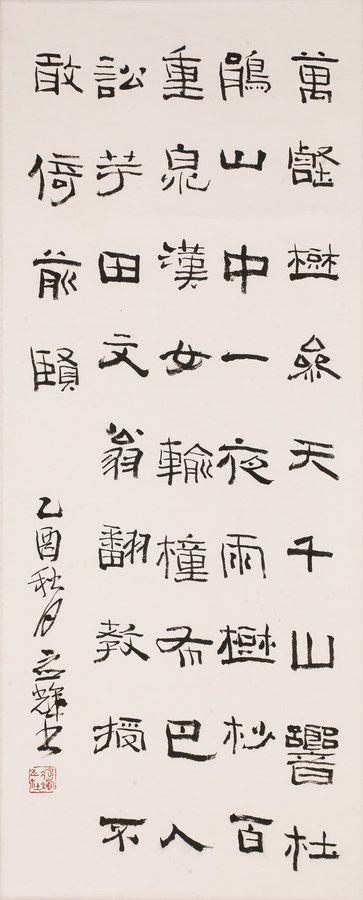 萬壑樹參天千山響杜
鵑山中一夜雨樹杪百
重泉漢女輸橦布巴人
訟芋田文翁翻教授不
敢倚前賢
乙酉秋月輝書